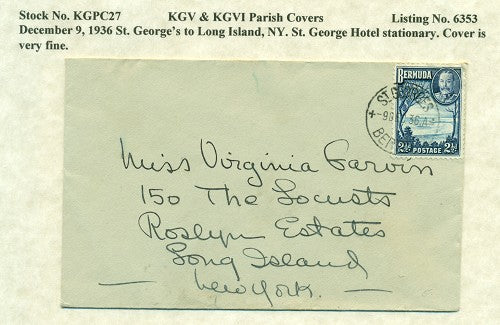 Stock No. KGPC27 KGV & KGVI Parish Covers Listing No. 6353
December 9, 1936 St. George's to Long Island, NY. St. George Hotel stationary. Cover is
very fine.
BERMUDA
2½ POSTAGE 2½
ST. GEORGES
36
Miss Virginia Garvin
150 The Locusts
Roslyn Estates
Long Island
— New York. —